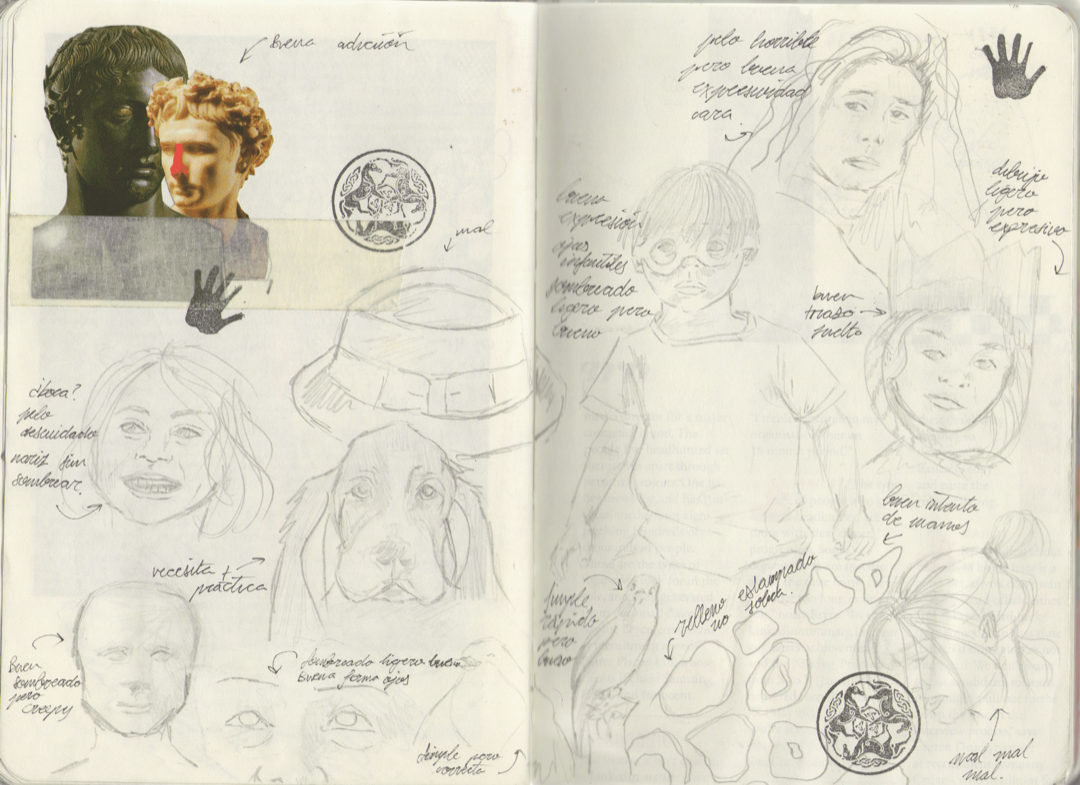 Buena adición
mal
¿boca?
pelo
descuidado
nariz sin
sombrear.
necesita +
práctica
Buen
sombreado
pero
creepy
sombreado ligero bueno
buena forma ojos
simple pero
correcto
pelo horrible
pero buena
expresividad
cara.
buena
expresión
ojos
infantiles
sombreado
ligero pero
bueno
dibujo
ligero
pero
expresivo
buen
trazo
suelto
buen intento
de manos
simple
rápido
pero
bueno
relleno estampado
no sobra.
mal mal
mal.